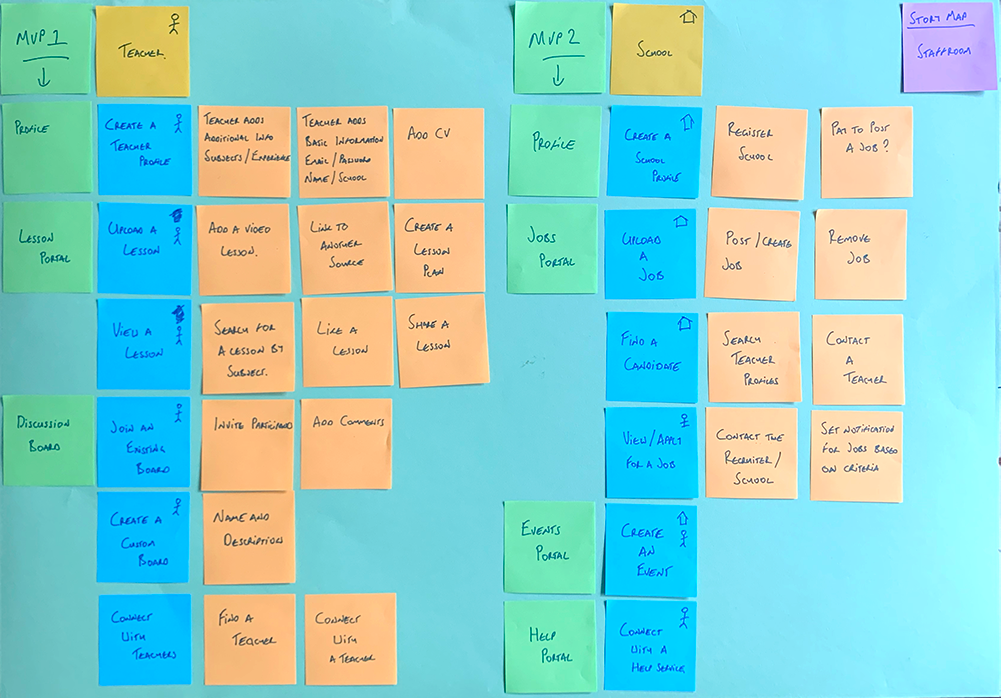 MVP 1
TEACHER.
PROFILE
CREATE A
TEACHER
PROFILE
TEACHER ADDS
ADDITIONAL INFO
SUBJECTS/EXPERIENCE
TEACHER ADDS
BASIC INFORMATION
EMAIL/PASSWORD
NAME/SCHOOL
ADD CV
LESSON
PORTAL
UPLOAD A
LESSON
ADD A VIDEO
LESSON.
LINK TO
ANOTHER
SOURCE
CREATE A
LESSON
PLAN
VIEW A
LESSON
SEARCH FOR
A LESSON BY
SUBJECT.
LIKE A
LESSON
SHARE A
LESSON
DISCUSSION
BOARD
JOIN AN
EXISTING
BOARD
INVITE PARTICIPANTS
ADD COMMENTS
CREATE A
CUSTOM
BOARD
NAME AND
DESCRIPTION
CONNECT
WITH
TEACHERS
FIND A
TEACHER
CONNECT
WITH
A TEACHER
MVP 2
SCHOOL
STORY MAP
STAFFROOM
PROFILE
CREATE A
SCHOOL
PROFILE
REGISTER
SCHOOL
PAY TO POST
A JOB?
JOBS
PORTAL
UPLOAD
A
JOB
POST/CREATE
JOB
REMOVE
JOB
FIND A
CANDIDATE
SEARCH
TEACHER
PROFILES
CONTACT
A
TEACHER
VIEW/APPLY
FOR A JOB
CONTACT THE
RECRUITER/
SCHOOL
SET NOTIFICATION
FOR JOBS BASED
ON CRITERIA
EVENTS
PORTAL
CREATE
AN
EVENT
HELP
PORTAL
CONNECT
WITH A
HELP SERVICE